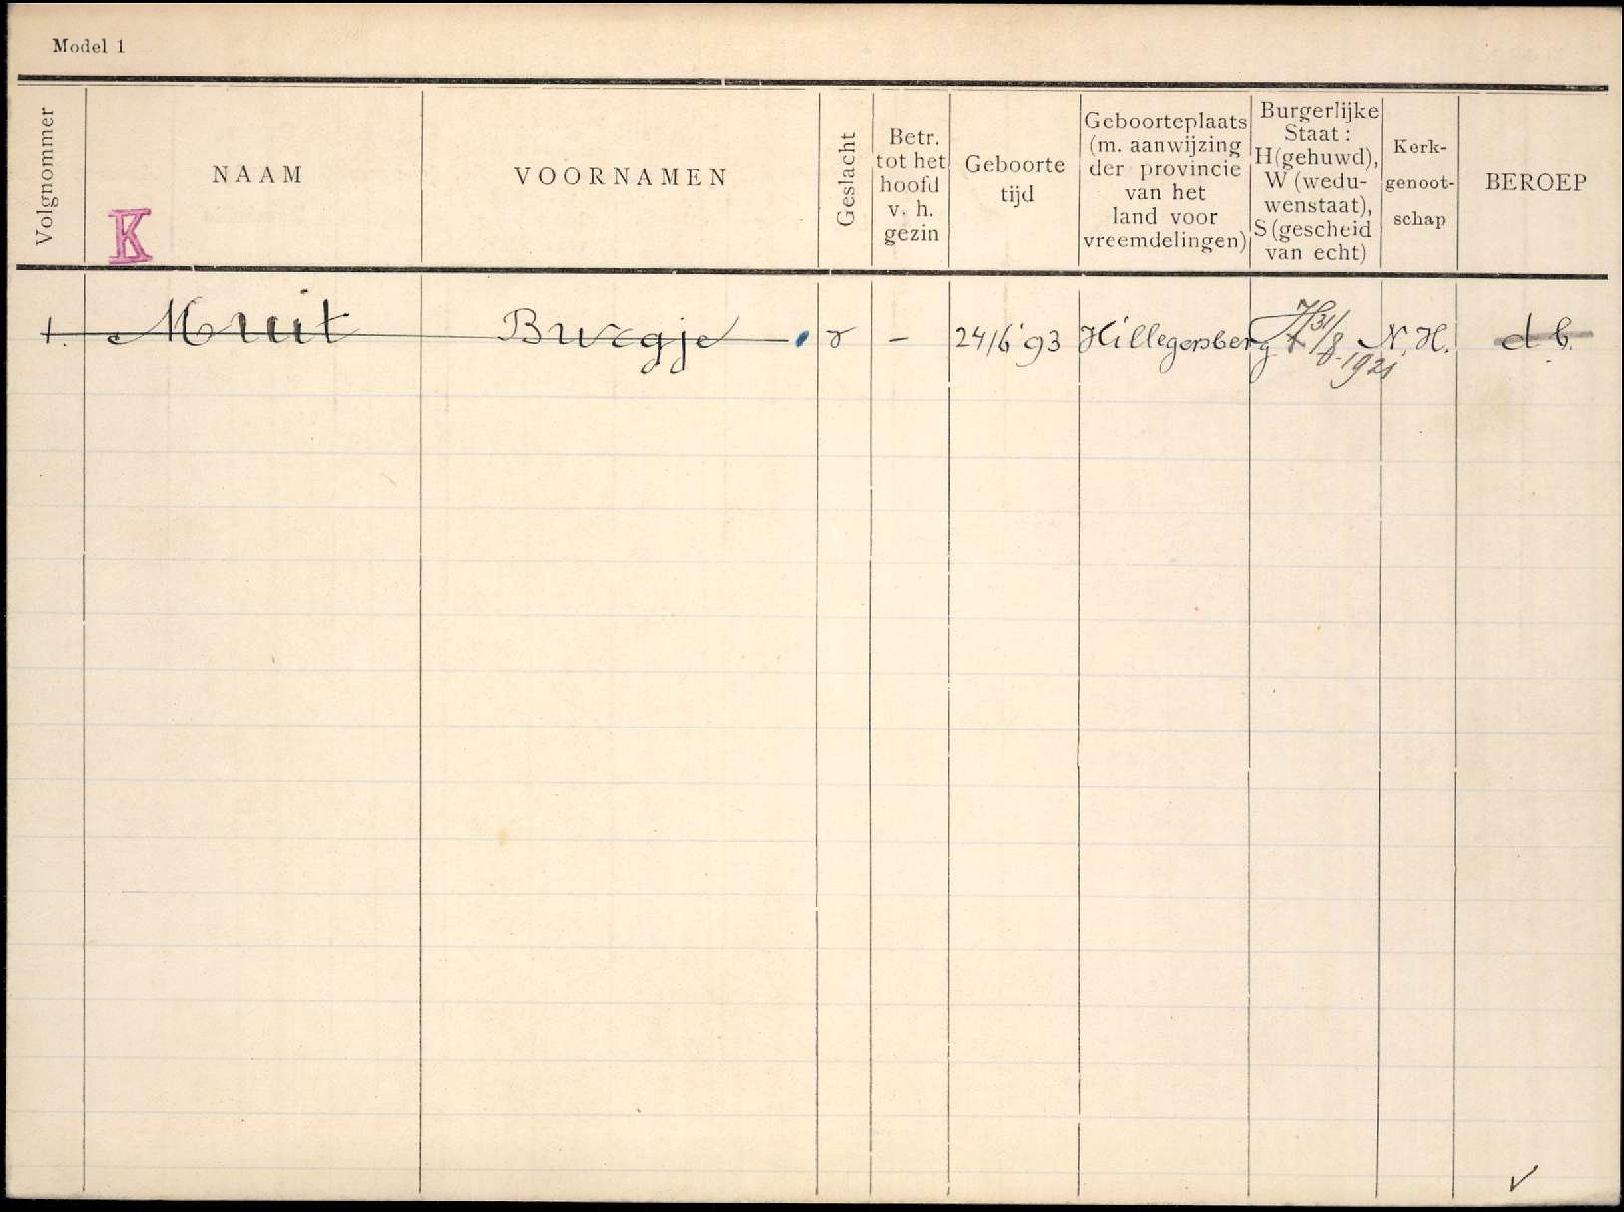 Model 1
Volgnommer
NAAM
K
VOORNAMEN
Geslacht
Betr.
tot het
hoofd
v. h.
gezin
Geboorte
tijd
Geboorteplaats
(m. aanwijzing
der provincie
van het
land voor
vreemdelingen)
Burgerlijke
Staat:
H(gehuwd),
W (wedu-
wenstaat),
S (gescheid
van echt)
Kerk-
genoot-
schap
BEROEP
1. Muit Burgje v – 24/6 '93 Hillegersberg H 31/8-1921 N.H. d.b.